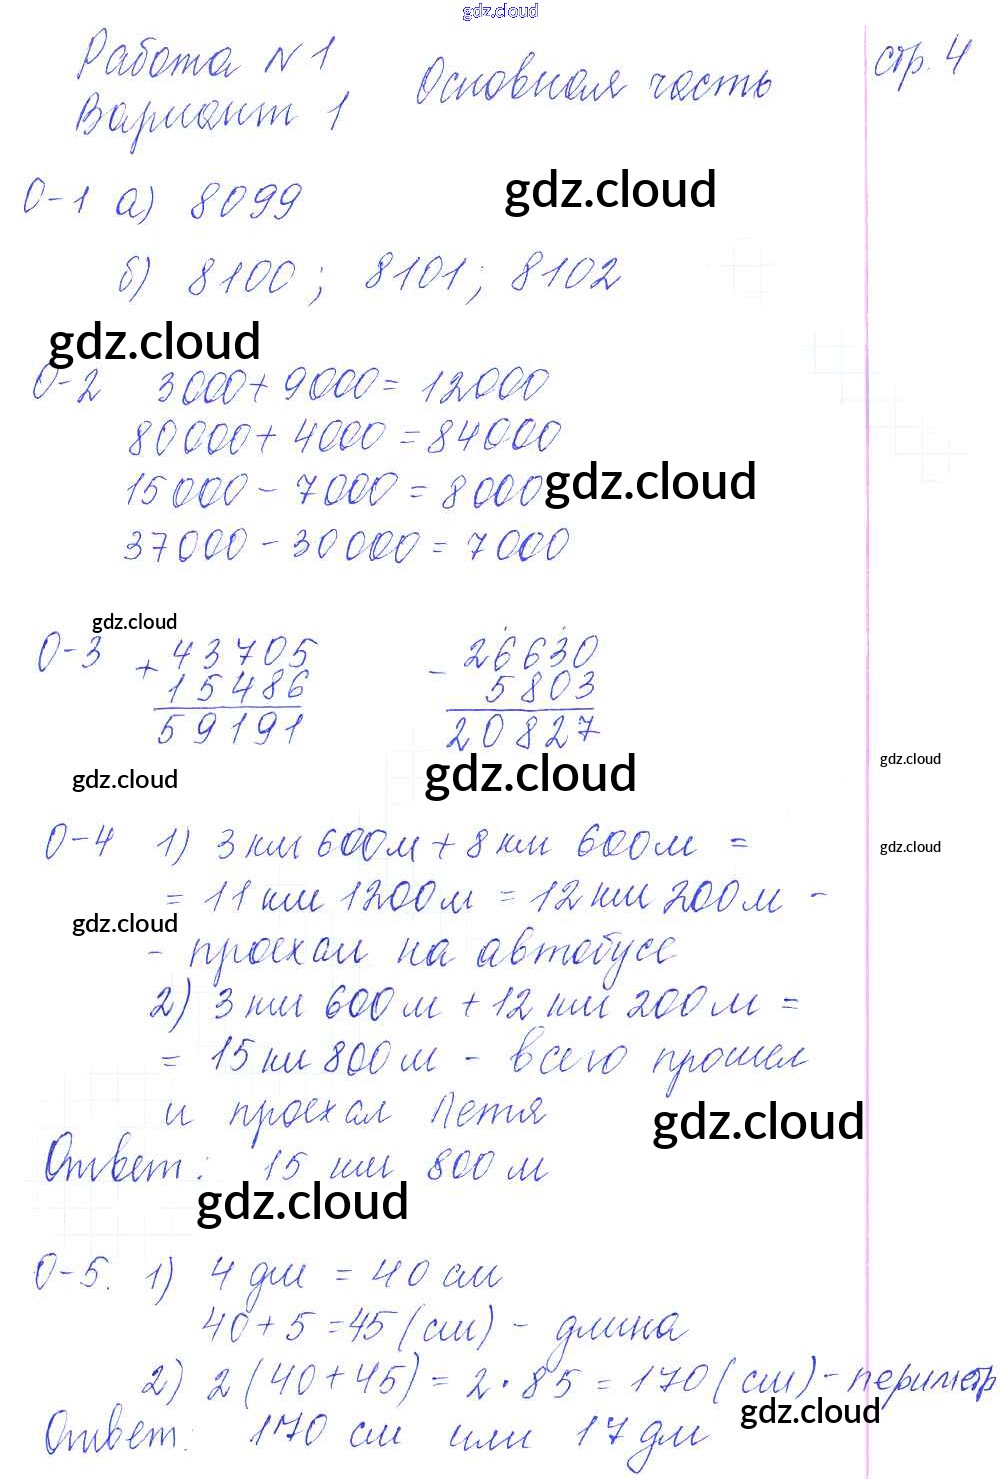 gdz.cloud
Работа N1
Основная часть
стр. 4
Вариант 1
О-1 а) 8099
gdz.cloud
б) 8100 ; 8101 ; 8102
gdz.cloud
О-2 3000 + 9000 = 12000
80000 + 4000 = 84000
15000 - 7000 = 8000
gdz.cloud
37000 - 30000 = 7000
gdz.cloud
О-3 + 43705 - 26630
15486 5803
59191 20827
gdz.cloud
gdz.cloud
gdz.cloud
О-4 1) 3 км 600 м + 8 км 600 м =
gdz.cloud
= 11 км 1200 м = 12 км 200 м -
gdz.cloud
- проехал на автобусе
2) 3 км 600 м + 12 км 200 м =
= 15 км 800 м - всего прошел
и проехал Петя
gdz.cloud
Ответ: 15 км 800 м
gdz.cloud
О-5. 1) 4 дм = 40 см
40 + 5 = 45 (см) - длина
2) 2 (40 + 45) = 2 · 85 = 170 (см) - периметр
gdz.cloud
Ответ: 170 см или 17 дм